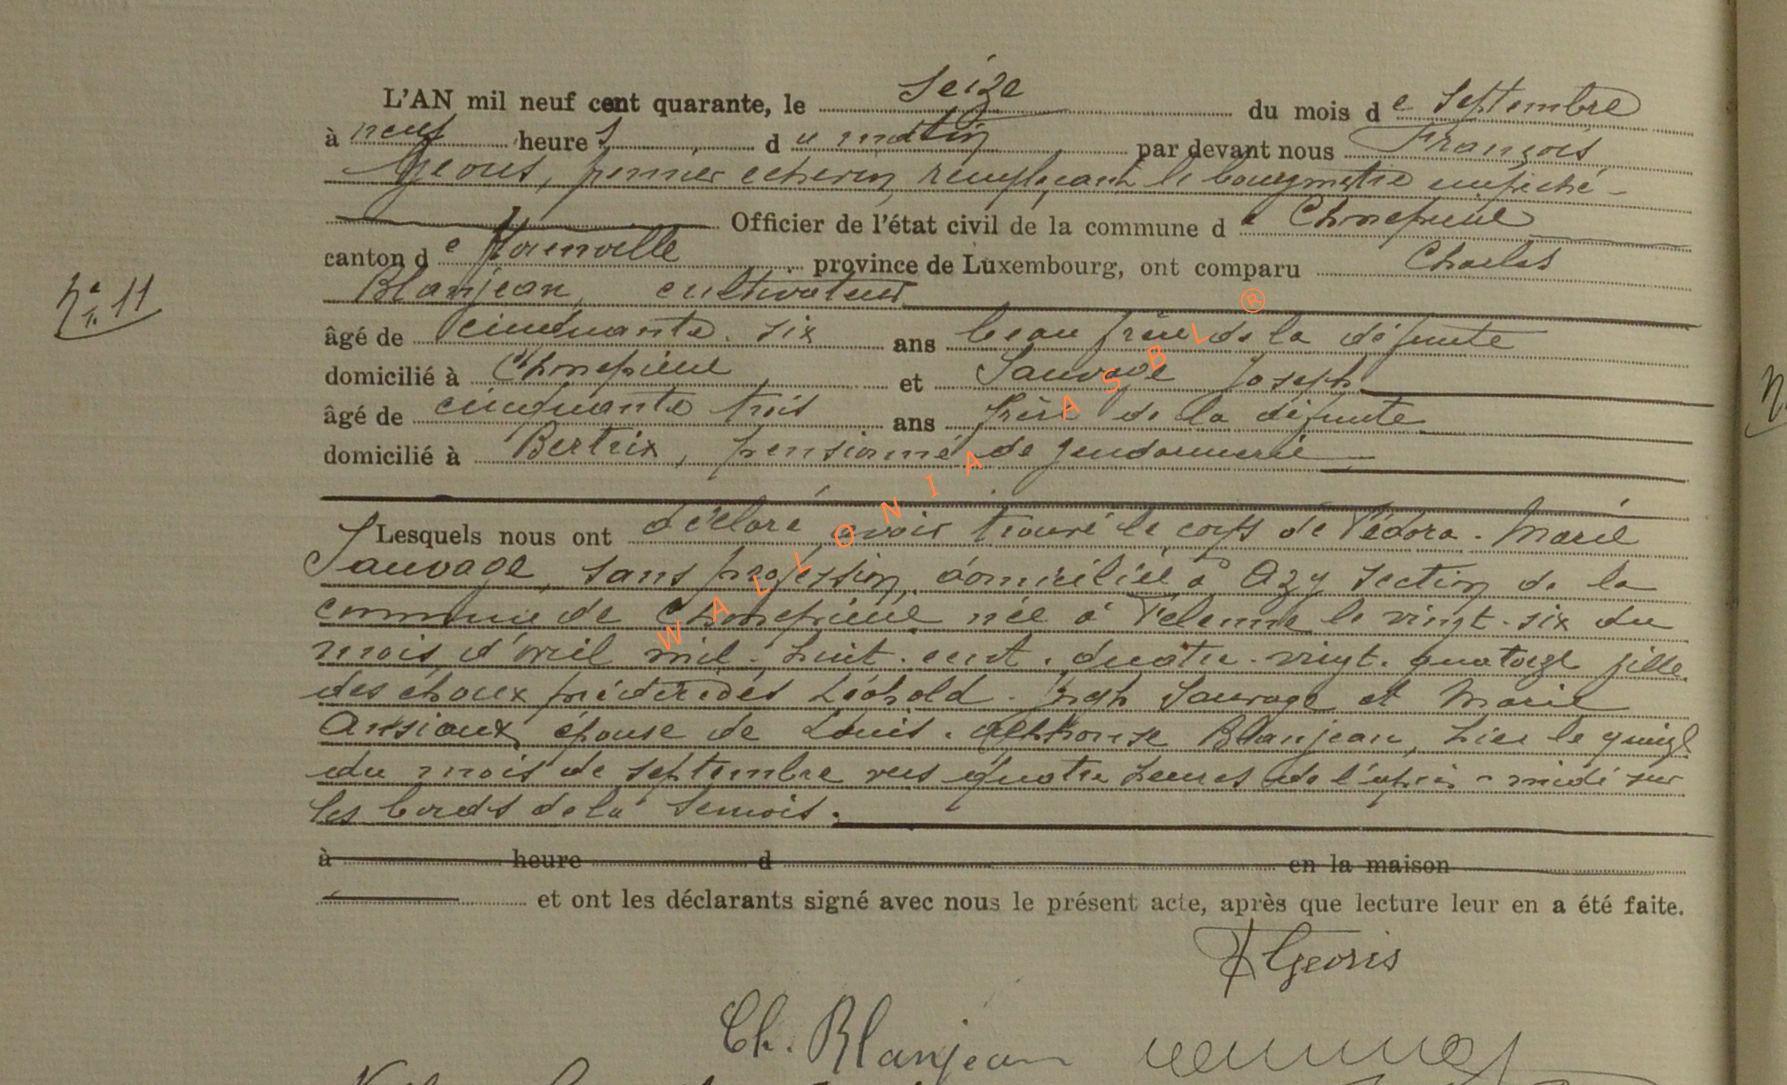 L'AN mil neuf cent quarante, le seize du mois de septembre
à neuf heures du matin par devant nous François
Georis, premier échevin, remplaçant le bourgmestre empêché
Officier de l'état civil de la commune de Chassepierre
canton de Florenville province de Luxembourg, ont comparu Charles
Blanjean, cultivateur
N° 11
âgé de cinquante-six ans beau frère de la défunte
domicilié à Chassepierre et Sauvage Joseph
âgé de cinquante trois ans frère de la défunte
domicilié à Bertrix, pensionné de gendarmerie
Lesquels nous ont déclaré avoir trouvé le corps de Fédora-Marie
Sauvage, sans profession, domiciliée à Azy section de la
commune de Chassepierre née à Felenne le vingt-six du
mois d'avril mil-huit-cent-quatre-vingt-quatorze fille
des époux prédécédés Léopold-Jgh Sauvage et Marie
Ansiaux, épouse de Louis-Alphonse Blanjean, hier le quinze
du mois de septembre vers quatre heures de l'après-midi sur
les bords de la Semois.
à heure d en la maison
et ont les déclarants signé avec nous le présent acte, après que lecture leur en a été faite.
F Georis
Ch. Blanjean
WALLONIA ASBL ®